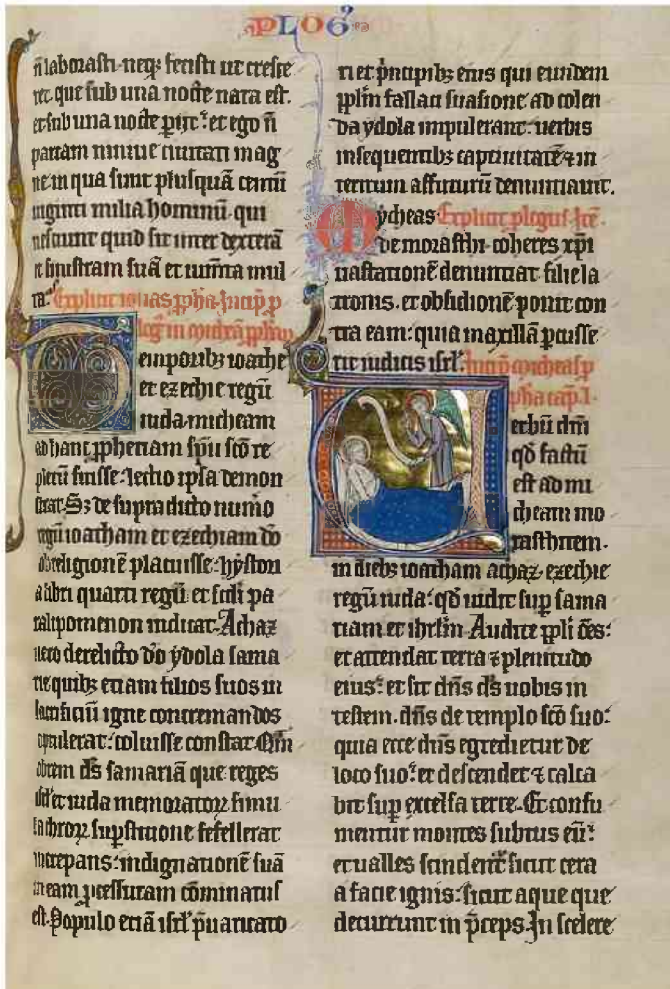 PLOG᾽
n̄ laborasti. neqꝫ fecisti ut cresce
ret. que sub una nocte nata est.
et sub una nocte ꝑijt. et ego n̄
parcam niniue ciuitati mag
ne in qua sunt plusquā centū
uiginti milia hominū. qui
nesciunt quid sit inter dexterā
et sinistram suā et iumēta mul
ta. Explicit ionas ꝓpha. Incip̄ ꝓ
log᾽ in micheā ꝓpham
Temporibꝫ ioathe
et ezechie regū
iuda. micheam
ad hanc ꝓphetiam sp̄u sc̄o re
pletū fuisse. lectio ipsa demon
strat. Sꝫ de supradicto num̄o
regū ioatham et ezechiam dō
ob religionē placuisse. hystori
a libri quarti regū et scd̄i pa
ralipomenon indicat. Achaz
uero derelicto dō ydola sama
rie quibꝫ etiam filios suos in
sacrificiū igne concremandos
optulerat. coluisse constat. Qm̄
obrem ds̄ samariā que reges
isrl̄ et iuda memoratoꝝ simu
lachroꝝ suꝑstitione fefellerat
increpans. indignationē suā
in eam ꝓcessuram cōminatus
est. Populo etiā isrl̄ p̄uaricato
ri et p̄ncipibꝫ eius qui eundem
ppl̄m fallaci suasione ad colen
da ydola impulerant. uerbis
insequentibꝫ captiuitatē ⁊ in
teritum affuturū denuntiauit.
Mycheas Explicit plogus. Itē.
de morasthi. coheres xp̄i
uastationē denuntiat filie la
tronis. et obsidionē ponit con
tra eam. quia maxillā ꝑcusse
rit iudicis isrl̄. Incip̄ micheas ꝓ
pha cap̄. I.
Uerbū dn̄i
qd̄ factū
est ad mi
cheam mo
rasthitem.
in diebꝫ ioatham achaz. ezechie
regū iuda. qd̄ uidit suꝑ sama
riam et ihrl̄m. Audite ppl̄i ōēs.
et attendat terra ⁊ plenitudo
eius. et sit dn̄s ds̄ uobis in
testem. dn̄s de templo sc̄o suo.
quia ecce dn̄s egredietur de
loco suo. et descendet ⁊ calca
bit suꝑ excelsa terre. Et consu
mentur montes subtus eū.
et ualles scindent᾽ sicut cera
a facie ignis. sicut aque que
decurrunt in p̄ceps. In scelere